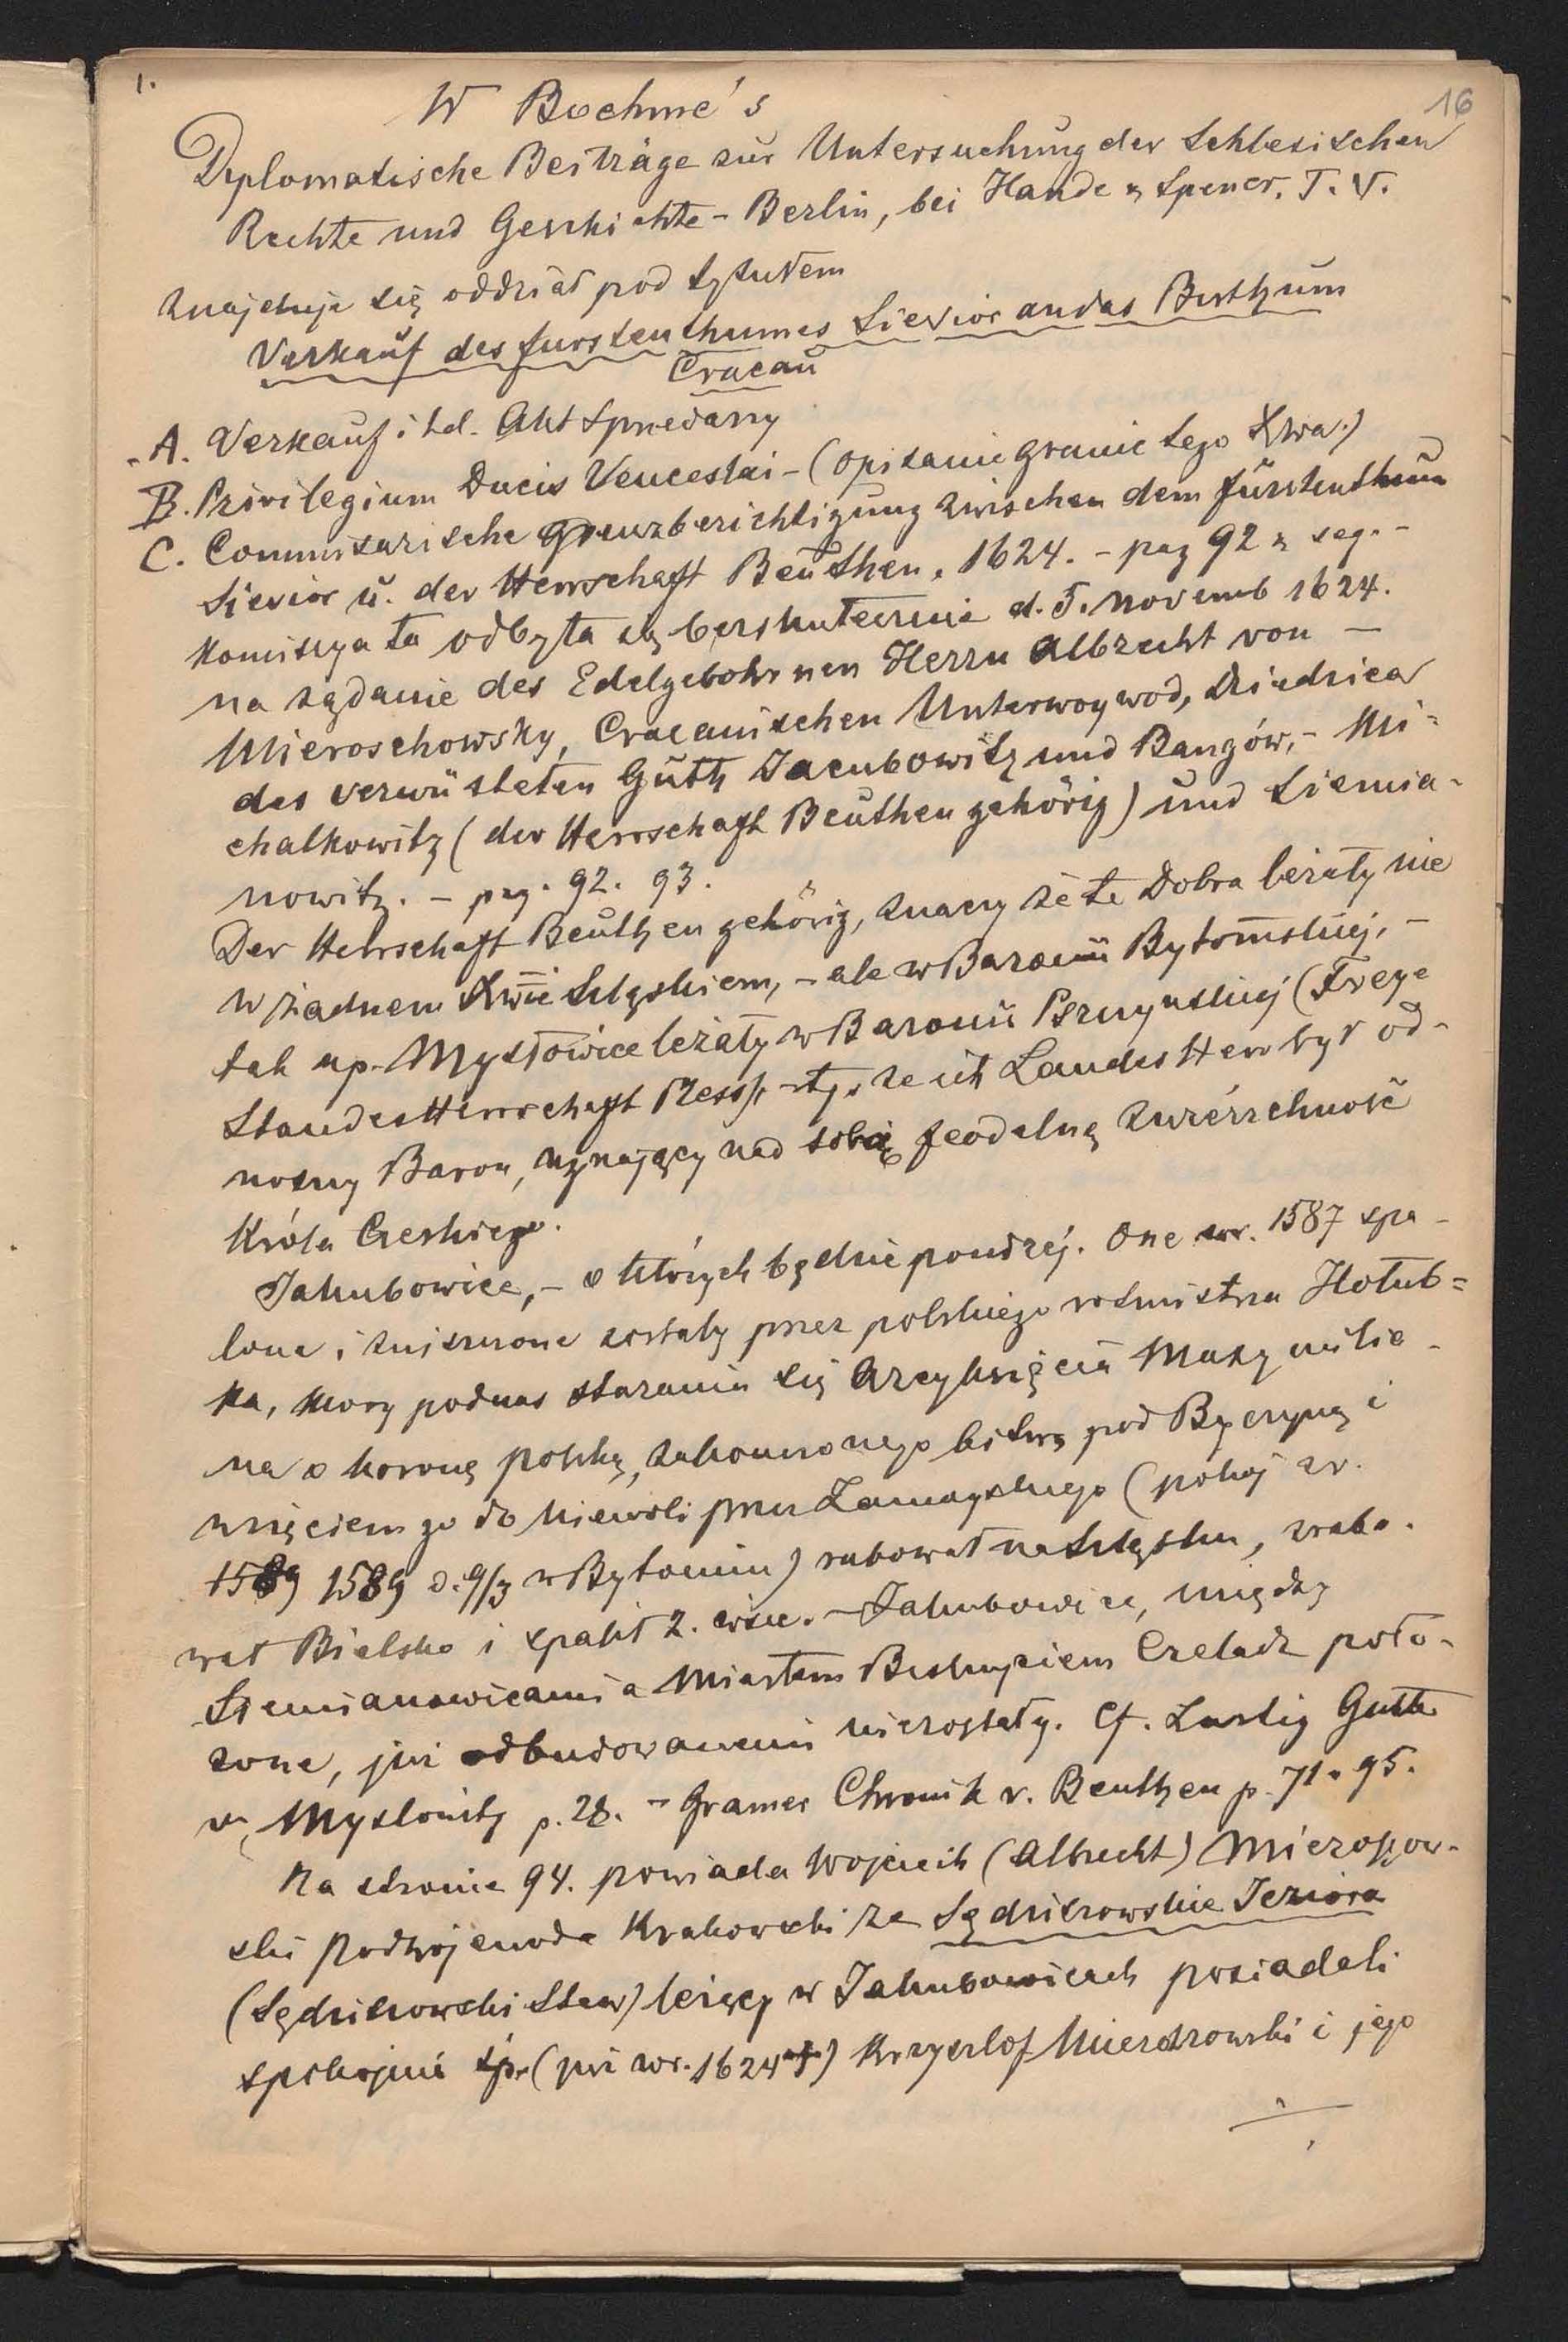 1.
16
W Boehme's
Diplomatische Beiträge zur Untersuchung der Schlesischen
Rechte und Geschichte - Berlin, bei Haude & Spener. T. V.
znajduje się oddział pod tytułem
Verkauf des furstenthumes Sievior an das Bisthum
Cracau
A. Verkauf i td. Akt Sprzedarzy
B. Privilegium Ducis Venceslai - (opisanie granic tego Xwa.)
C. Commissarische Grenzberichtigung zwischen dem fürstenthum
Sievior u. der Herrschaft Beuthen, 1624. - pag 92 & seq. -
Komisya ta odbyta się bezskutecznie d. 5. Novemb 1624.
na żądanie des Edelgebohrnen Herrn Albrecht von -
Mieroschowsky, Cracauischen Unterwoywod, dziedzica
des verwüsteten Guth Jacubowitz und Bangów, - Mi=
chalkowitz (der Herrschaft Beuthen gehörig) und Siemia-
nowitz. - pag. 92. 93.
Der Herrschaft Beuthen gehörig, znaczy że te Dobra leżały nie
w żadnem Xwie Szląskiem, - ale w Baronii Bytomskiej, -
tak np. Mysłowice leżały w Baronii Pszczyńskiej (Freye
StandesHerrschaft Pless), tj. że ich LandesHerr był od-
nośny Baron, uznający nad sobą feodalną zwierzchność
Króla Czeskiego.
Jakubowice, - o których będzie poniżej. One w r. 1587 spa-
lone i zniszczone zostały przez polskiego rotmistrza Hołub=
ka, który podczas starania się Arcyksięcia Maxymilia-
na o koronę polską, zakończonego bitwą pod Byczyną i
wzięciem go do niewoli przez Zamoyskiego (pokój z r.
1589 1589 d. 9/3 w Bytomiu) rabował na Szląsku, zrabo-
wał Bielsko i spalił 2. wsie. - Jakubowice, między
Siemianowicami a Miastem Biskupiem Czeladź poło-
żone, już odbudowanemi nie zostały. Cf. Lustig Gesch.
v. Myslowitz p. 28. - Gramer Chronik v. Beuthen p. 71. 95.
Na stronie 94. powiada Wojciech (Albrecht) Mieroszow-
ski Podwojewoda Krakowski że Sędziszowskie Jeziora
(Sędziszowski Staw) leżący w Jakubowicach posiadali
spokojnie śp. (już w r. 1624) Krzysztof Mieroszowski i jego